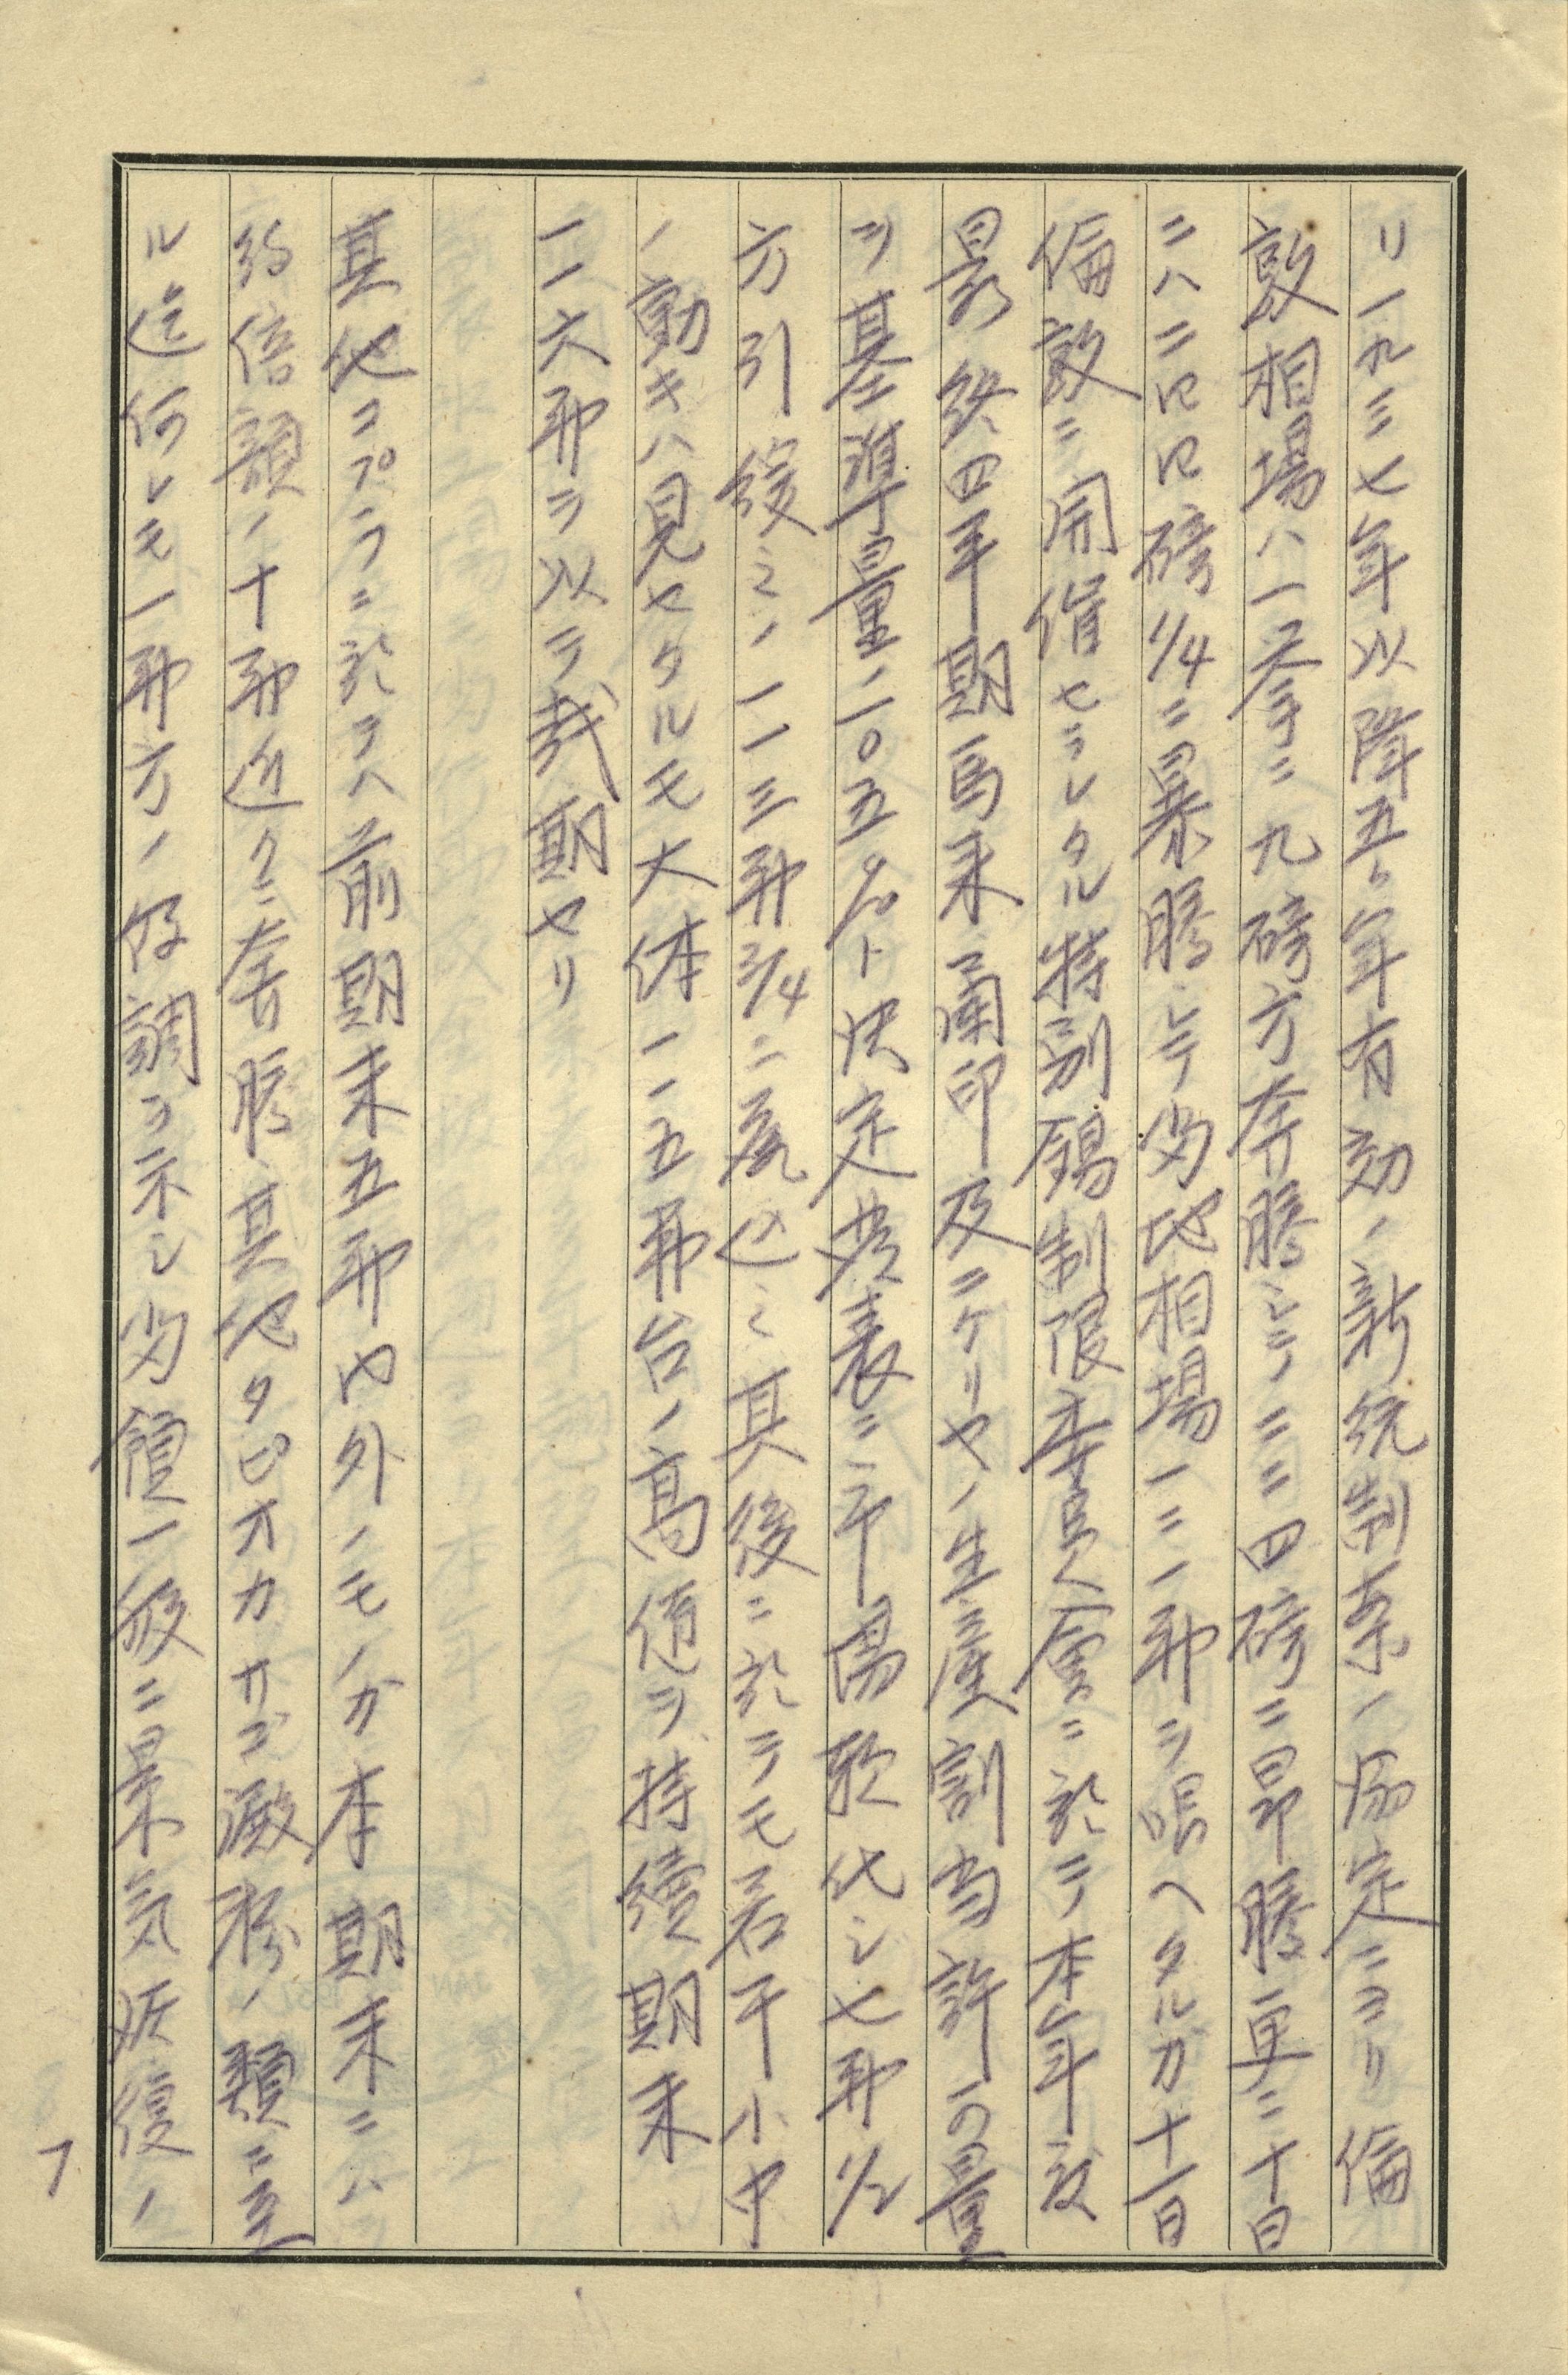 リ一九三七年以降五ヶ年有効ノ新統制案ノ協定ニヨリ倫
敦相場ハ一挙ニ九磅方奔騰シテ二二四磅ニ昂騰更ニ十日
ニハ二四四磅1/4ニ暴騰シテ当地相場一二一弗ヲ唱ヘタルガ十一日
倫敦ニ開催セラレタル特別錫制限委員会ニ於テ本年度
最終四半期馬来蘭印及ニゲリヤノ生産割当許可量
ヲ基準量ノ一〇五%ト決定発表ニ一斉崩歇化シ七弗1/2
方引緩ミノ一一三弗3/4ニ尻込ミ其後ニ於テモ若干小中
ノ動キハ見セタルモ大体一一五弗台ノ高値ヲ持続期末
一一六弗ヲ以テ越期セリ
其他コプラニ於テハ前期末五弗内外ノモノガ本期末ニハ
約倍額ノ十弗近クニ奔騰其他タピオカサゴ澱粉ノ類ニ至
ル迄何レモ一弗方ノ好調ヲ示シ当領一般ニ景気恢復ノ
7